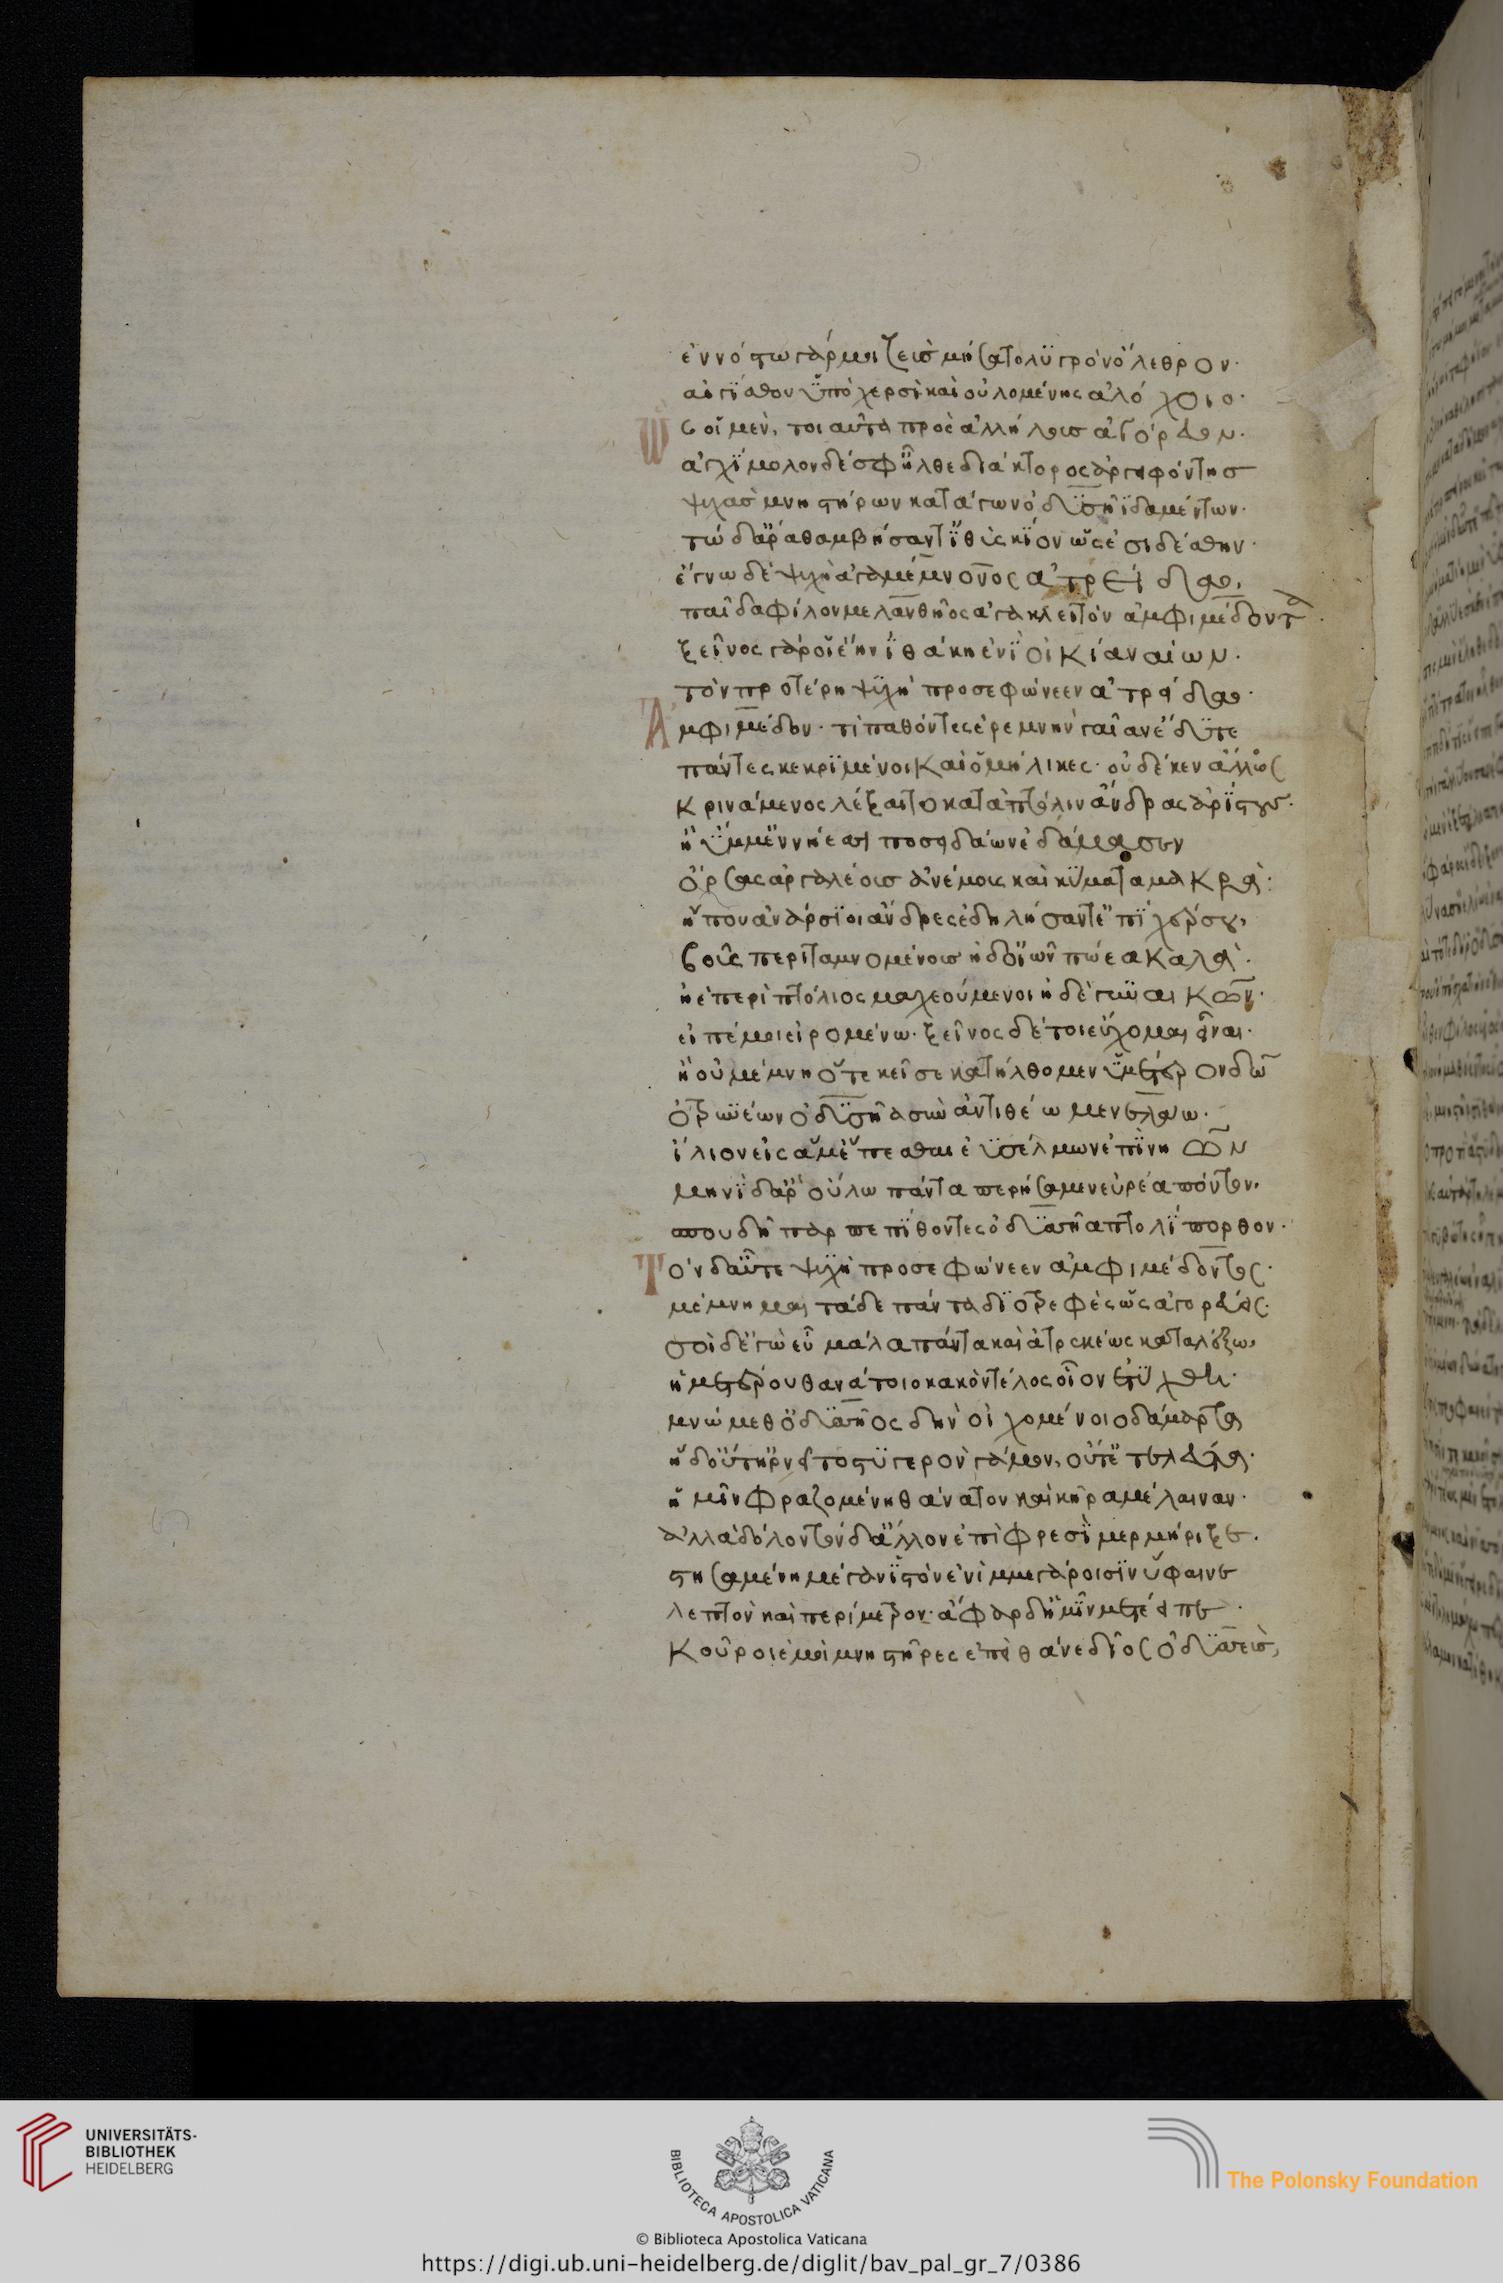 ἐν νόστω γάρ μοι ζεὺς μήσατο λυγρὸν ὄλεθρον·
αἰγίσθου ὑπὸ χερσὶ καὶ οὐλομένης ἀλόχοιο·
Ὣς οἱ μὲν, τοιαῦτα πρὸς ἀλλήλους ἀγόρευον·
ἀγχίμολον δέ σφ' ἦλθε διάκτορος ἀργειφόντης
ψυχὰς μνηστήρων κατάγων ὀδυσῆι δαμέντων·
τὼ δ' ἄρα θαμβήσαντ' ἰθὺς κίον ὡς ἐσιδέσθην·
ἔγνω δὲ ψυχὴ ἀγαμέμνονος ἀτρείδαο,
παῖδα φίλον μελανθῆος ἀγακλειτὸν ἀμφιμέδοντα·
ξεῖνος γάρ οἱ ἔην ἰθάκη ἐνὶ οἰκία ναίων·
τὸν προτέρη ψυχὴ προσεφώνεεν ἀτρείδαο·
Ἀμφίμεδον· τί παθόντες ἐρεμνὴν γαῖαν ἔδυτε
πάντες κεκριμένοι καὶ ὁμήλικες· οὐδέ κεν ἄλλως
κρινάμενος λέξαιτο κατὰ πτόλιν ἄνδρας ἀρίστους·
ἢ ὔμμ' ἐν νήεσσι ποσειδάων ἐδάμασσεν
ὄρσας ἀργαλέους ἀνέμους καὶ κύματα μακρά:
ἤ που ἀνάρσιοι ἄνδρες ἐδηλήσαντ' ἐπὶ χέρσου,
βοῦς περιταμνομένους ἠδ' οἰῶν πώεα καλά·
ἠὲ περὶ πτόλιος μαχεούμενοι ἠδὲ γυναικῶν·
εἰπέ μοι εἰρομένω· ξεῖνος δέ τοι εὔχομαι εἶναι·
ἢ οὐ μέμνη ὅτε κεῖσε κατήλθομεν ὑμέτερον δῶ
ὀτρυνέων ὀδυσῆα σὺν ἀντιθέω μενελάω·
ἴλιον εἰς ἅμ' ἕπεσθαι ἐυσέλμων ἐπὶ νηῶν
μηνὶ δ' ἄρ' οὔλω πάντα περήσαμεν εὐρέα πόντον,
σπουδῆ παρπεπιθόντες ὀδυσσῆα πτολίπορθον·
Τὸν δ' αὖτε ψυχὴ προσεφώνεεν ἀμφιμέδοντος·
μέμνημαι τάδε πάντα διοτρεφὲς ὡς ἀγορεύεις·
σοὶ δ' ἐγὼ εὖ μάλα πάντα καὶ ἀτρεκέως καταλέξω,
ἡμετέρου θανάτοιο κακὸν τέλος οἷον ἐτύχθη·
μνώμεθ' ὀδυσσῆος δὴν οἰχομένοιο δάμαρτα
ἣ δ' οὔτ' ἠρνεῖτο στυγερὸν γάμον, οὔτ' ἐτελεύτα·
ἡμῖν φραζομένη θάνατον καὶ κῆρα μέλαιναν·
ἀλλὰ δόλον τόνδ' ἄλλον ἐπὶ φρεσὶ μερμήριξε·
στησαμένη μέγαν ἱστὸν ἐνὶ μμεγάροισιν ὕφαινε
λεπτὸν καὶ περίμετρον· ἄφαρ δ' ἡμῖν μετέειπε·
Κοῦροι ἐμοὶ μνηστῆρες ἐπεὶ θάνε δῖος ὀδυσσεὺς,
UNIVERSITÄTS-
BIBLIOTHEK
HEIDELBERG
BIBLIOTECA APOSTOLICA VATICANA
The Polonsky Foundation
© Biblioteca Apostolica Vaticana
https://digi.ub.uni-heidelberg.de/diglit/bav_pal_gr_7/0386